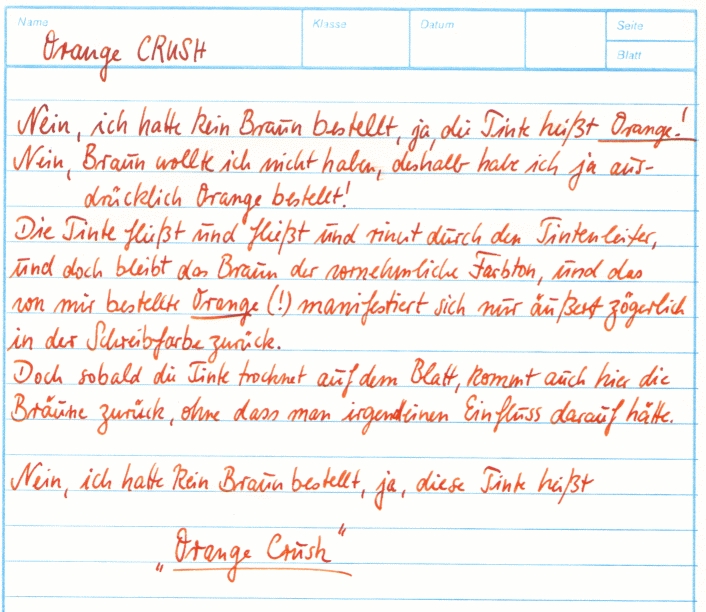 Name
Klasse
Datum
Seite
Blatt
Orange CRUSH
Nein, ich hatte kein Braun bestellt, ja, die Tinte heißt Orange!
Nein, Braun wollte ich nicht haben, deshalb habe ich ja aus-
drücklich Orange bestellt!
Die Tinte fließt und fließt und rinnt durch den Tintenleiter,
und doch bleibt das Braun der vornehmliche Farbton, und das
von mir bestellte Orange (!) manifestiert sich nur äußerst zögerlich
in der Schreibfarbe zurück.
Doch sobald die Tinte trocknet auf dem Blatt, kommt auch hier die
Bräune zurück, ohne dass man irgendeinen Einfluss darauf hätte.
Nein, ich hatte kein Braun bestellt, ja, diese Tinte heißt
„Orange Crush"